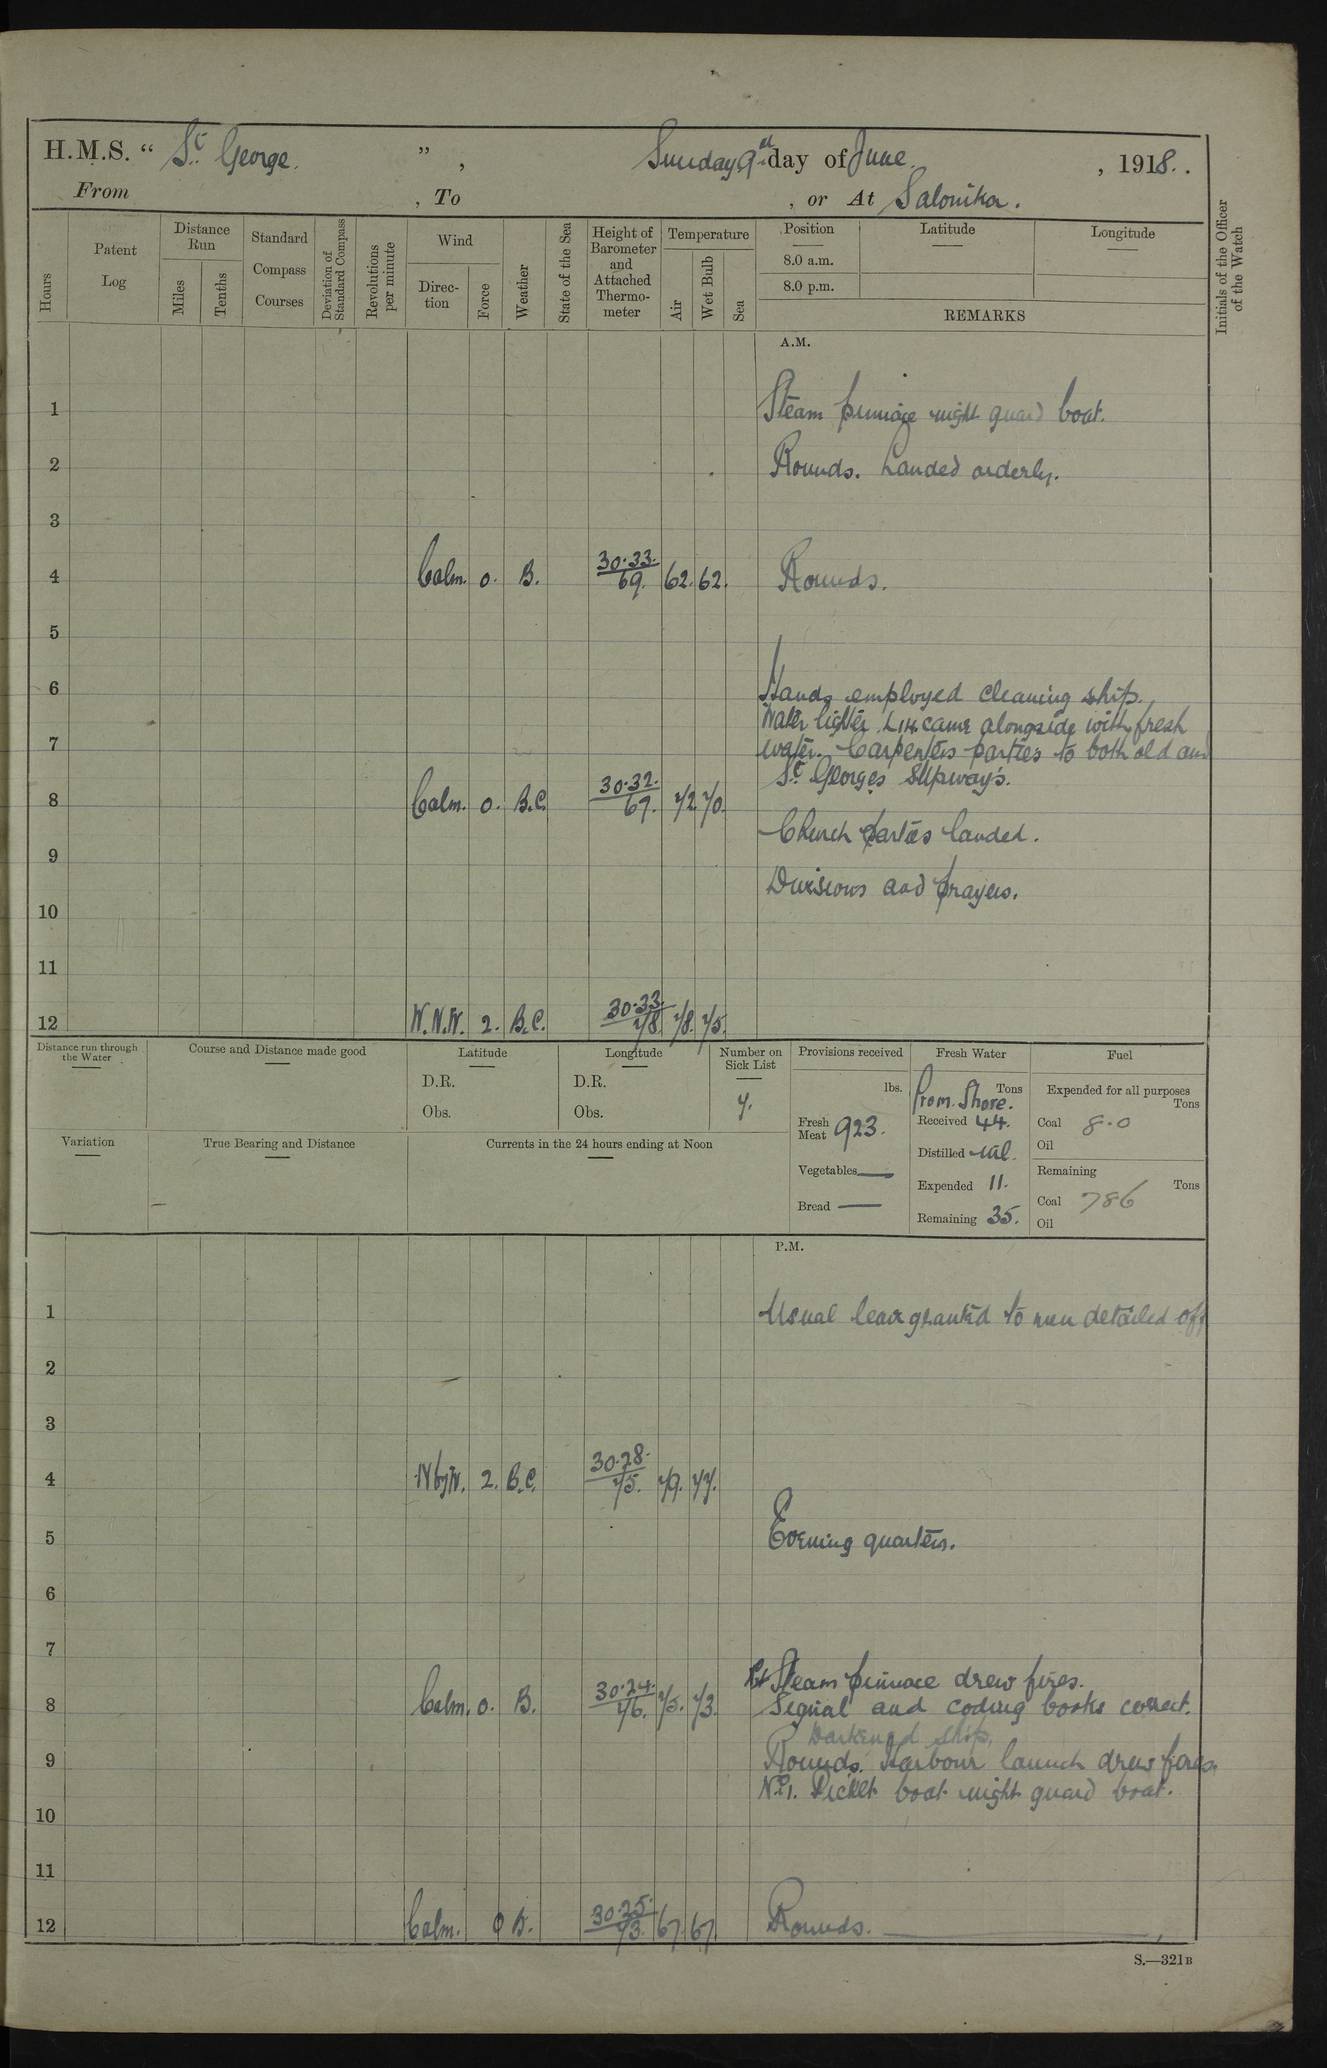 H.M.S. “ St. George. ” , Sunday 9th day of June. , 1918.
From , To , or At Salonika.
Hours
Patent Log
Distance Run
Miles
Tenths
Standard Compass Courses
Deviation of Standard Compass
Revolutions per minute
Wind
Direction
Force
Weather
State of the Sea
Height of Barometer and Attached Thermometer
Temperature
Air
Wet Bulb
Sea
Position
8.0 a.m.
8.0 p.m.
Latitude
Longitude
REMARKS
Initials of the Officer of the Watch
A.M.
1 Steam pinnace night guard boat.
2 Rounds. Landed orderly.
3
4 Calm. 0. B. 30.33. 69. 62. 62. Rounds.
5
6 Hands employed cleaning ship.
Water lighter L14 came alongside with fresh
7 water. Carpenters parties to both old and
St. Georges Slipways.
8 Calm. 0. B.C. 30.32. 69. 72 70.
Church parties landed.
9
Divisions and prayers.
10
11
12 W.N.W. 2. B.C. 30.33. 78. 78. 75.
Distance run through the Water
Course and Distance made good
Latitude
D.R.
Obs.
Longitude
D.R.
Obs.
Number on Sick List
7.
Provisions received
lbs.
Fresh Meat 923.
Vegetables —
Bread —
Fresh Water
Tons
From Shore.
Received 44.
Distilled nil.
Expended 11.
Remaining 35.
Fuel
Expended for all purposes
Tons
Coal 8.0
Oil
Remaining
Tons
Coal 786
Oil
Variation
True Bearing and Distance
Currents in the 24 hours ending at Noon
P.M.
1 Usual leave granted to men detailed off
2
3
4 N by W. 2. B.C. 30.28. 75. 79. 77.
5 Evening quarters.
6
7
Steam pinnace drew fires.
8 Calm. 0. B. 30.24. 76. 75. 73. Signal and coding books correct.
Darkened ship.
9 Rounds. Harbour launch drew fires.
No 1. Picket boat night guard boat.
10
11
12 Calm. 0 B. 30.25. 73. 67 67. Rounds.
S.—321B